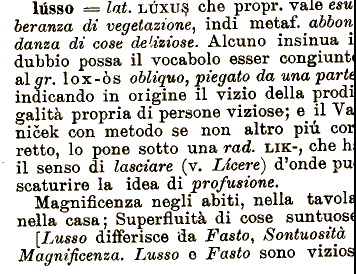 lússo = lat. LÚXUS che propr. vale esu
beranza di vegetazione, indi metaf. abbon
danza di cose deliziose. Alcuno insinua i
dubbio possa il vocabolo esser congiunt
al gr. lox-òs obliquo, piegato da una parte
indicando in origine il vizio della prodi
galità propria di persone viziose; e il Va
niček con metodo se non altro piú cor
retto, lo pone sotto una rad. LIK-, che h
il senso di lasciare (v. Lícere) d'onde pu
scaturire la idea di profusione.
Magnificenza negli abiti, nella tavola
nella casa; Superfluità di cose suntuose
[Lusso differisce da Fasto, Sontuosità
Magnificenza. Lusso e Fasto sono vizios